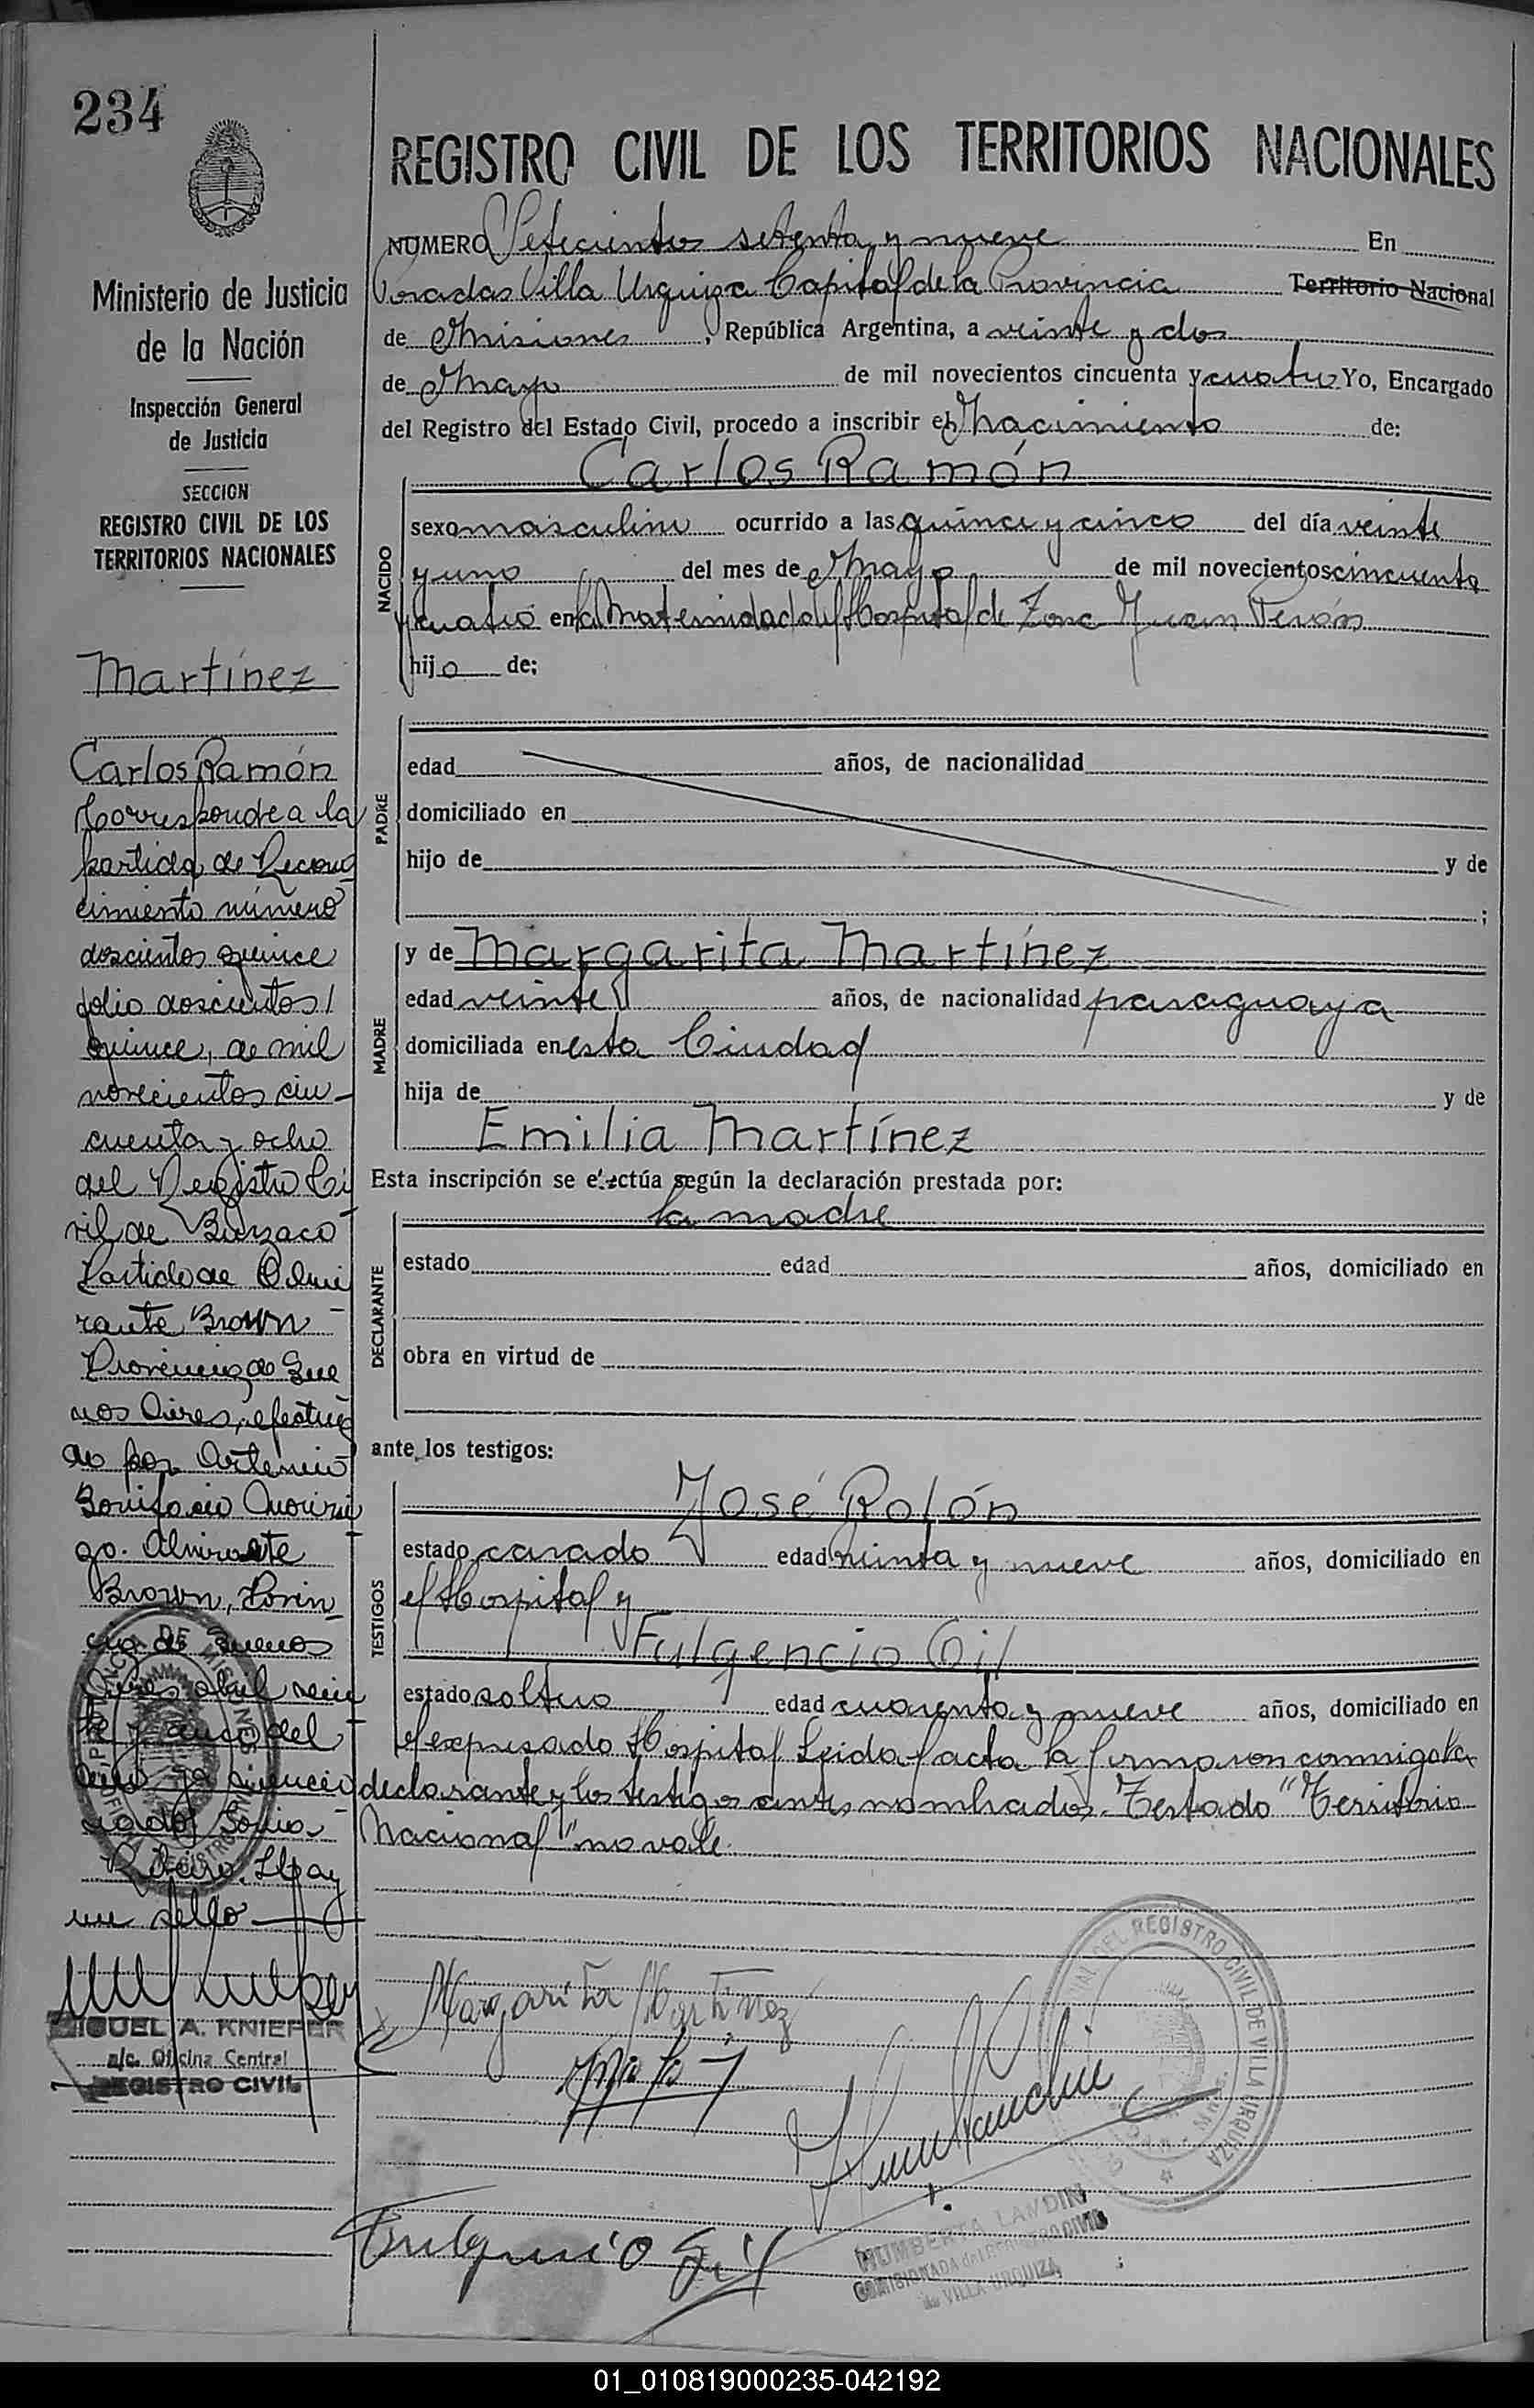 234
Ministerio de Justicia
de la Nación
Inspección General
de Justicia
SECCION
REGISTRO CIVIL DE LOS
TERRITORIOS NACIONALES
Martínez
Carlos Ramón
Corresponde a la
partida de Recono
cimiento número
doscientos quince
folio doscientos
quince, de mil
novecientos cin-
cuenta y ocho
del Registro Ci
vil de Burzaco
Partido de Almi
rante Brown
Provincia de Bue
nos Aires, efectua
do por Artemio
Bonifacio
go. Almirante
Brown, Provin
cia de Buenos
Aires abril vein
te y cinco del
Hay
un sello
MIGUEL A. KNIEPER
a/c. Oficina Central
REGISTRO CIVIL
REGISTRO CIVIL DE LOS TERRITORIOS NACIONALES
NUMERO Setecientos setenta y nueve En
Posadas Villa Urquiza Capital de la Provincia Territorio Nacional
de Misiones, República Argentina, a veinte y dos
de Mayo de mil novecientos cincuenta y cuatro Yo, Encargado
del Registro del Estado Civil, procedo a inscribir el Nacimiento de:
Carlos Ramón
NACIDO
sexo masculino ocurrido a las quince y cinco del día veinte
y uno del mes de Mayo de mil novecientos cincuenta
y cuatro en la Maternidad del Hospital de Zona Juan Perón
hijo de:
PADRE
edad años, de nacionalidad
domiciliado en
hijo de y de
;
MADRE
y de Margarita Martínez
edad veinte años, de nacionalidad paraguaya
domiciliada en esta Ciudad
hija de y de
Emilia Martínez
Esta inscripción se efectúa según la declaración prestada por:
la madre
DECLARANTE
estado edad años, domiciliado en
obra en virtud de
ante los testigos:
José Rolón
TESTIGOS
estado casado edad treinta y nueve años, domiciliado en
el Hospital y
Fulgencio Gil
estado soltero edad cuarenta y nueve años, domiciliado en
el expresado Hospital Leida el acta la firmaron conmigo la
declarante y los testigos antes nombrados. Testado "Territorio
Nacional" no vale.
Margarita Martinez
Fulguncio Gil
DEL REGISTRO CIVIL DE VILLA URQUIZA
HUMBERTA LANDIN
COMISIONADA del REGISTRO CIVIL
de VILLA URQUIZA
01_010819000235-042192